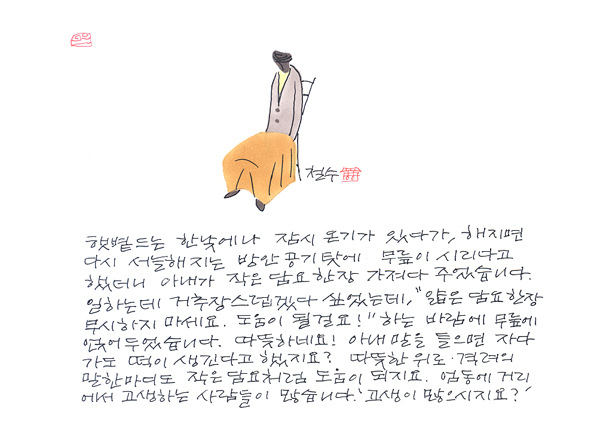 철수
햇볕드는 한낮에나 잠시 온기가 있다가, 해지면
다시 서늘해지는 방안 공기탓에 무릎이 시리다고
했더니 아내가 작은 담요 한장 가져다 주었습니다.
일하는데 거추장스럽겠다 싶었는데, "얇은 담요한장
무시하지 마세요. 도움이 될걸요!" 하는 바람에 무릎에
얹어 두었습니다. 따뜻하네요! 아내 말을 들으면 자다
가도 떡이 생긴다고 했지요? 따뜻한 위로·격려의
말한마디도 작은 담요처럼 도움이 되지요. 엄동에 거리
에서 고생하는 사람들이 많습니다. '고생이 많으시지요?'